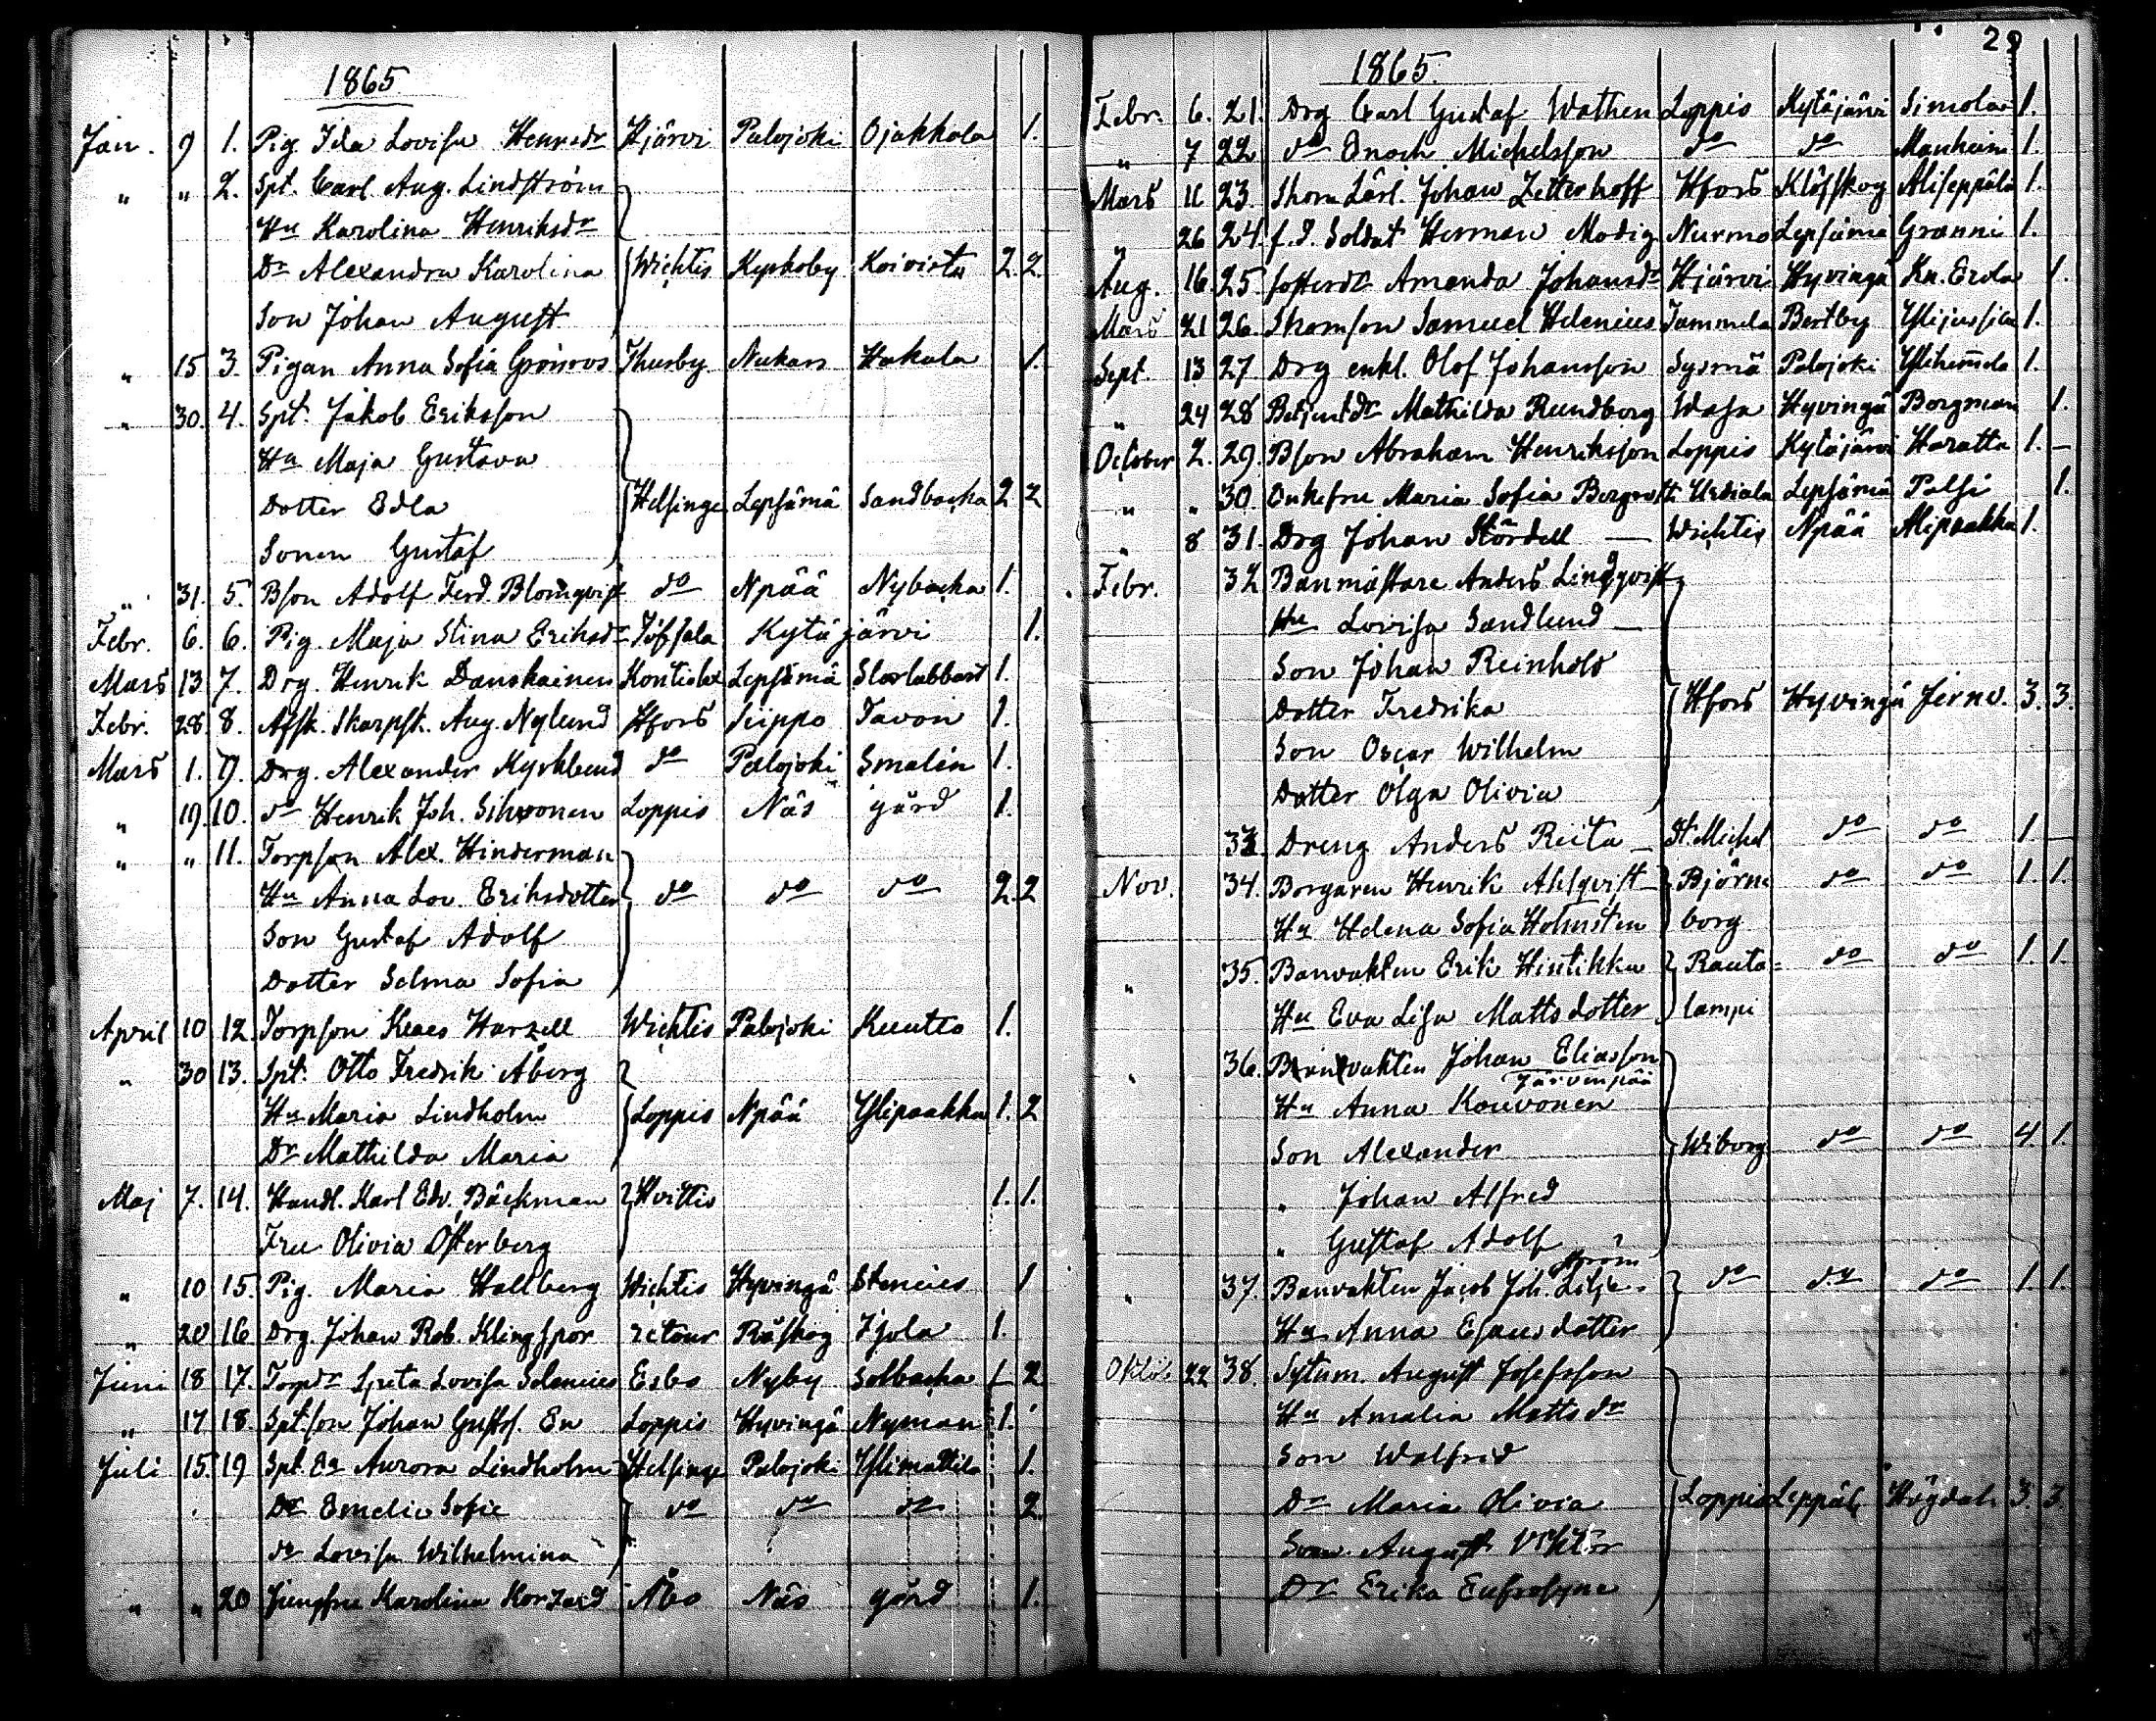 1865
Jan. 9 1. Pig. Ida Lovisa Henrsdr Hjärvi Palojoki Ojakkola 1.
" " 2. Spt. Carl Aug. Lindström
Hu Karolina Henriksdr
Dr Alexandra Karolina Wichtis Kyrkoby Koivisto 2. 2.
Son Johan August
" 15 3. Pigan Anna Sofia Grönroos Thusby Nukars Hakala 1.
" 30. 4. Spt. Jakob Eriksson
Hu Maja Gustava
Dotter Edla Helsinge Lepsämä Sandbacka 2 2
Sonen Gustaf
" 31. 5. Bson Adolf Ferd. Blomqvist do Npää Nybacka 1.
Febr. 6. 6. Pig. Maja Stina Eriksdr Jöfsala Kytäjärvi 1.
Mars 13 7. Drg. Henrik Danskainen Kontiolax Lepsämä Storlabbart 1.
Febr. 28 8. Afsk. Skarpsk. Aug. Nylund Hfors Siippo Tavon 1.
Mars 1. 9. Drg. Alexander Kyrklund do Palojoki Smalén 1.
" 19. 10. do Henrik Joh. Sihvonen Loppis Näs gård 1.
" " 11. Torpson Alex. Hinderman
Hu Anna Lov. Eriksdotter do do do 2. 2
Son Gustaf Adolf
Dotter Selma Sofia
April 10 12. Torpson Klaes Harzell Wichtis Palojoki Kuutto 1.
" 30 13. Spt. Otto Fredrik Åberg
Hu Maria Lindholm Loppis Npää Ylipaakka 1. 2
Dr Mathilda Maria
Maj 7. 14. Handl. Karl Edv. Bäckman Hvittis 1. 1.
Fru Olivia Österberg
" 10 15. Pig. Maria Hallberg Wichtis Hyvingä Stenius 1
" 20 16 Drg. Johan Rob. Klingspor retour Råskog Ijola 1.
Juni 18 17. Torpdr Greta Lovisa Selenius Esbo Nyby Solbacka 2
" 17 18. Spt.son Johan Gustaf. En Loppis Hyvingä Nyman 1.
Juli 15. 19 Spt. Ea Aurora Lindholm Helsinge Palojoki Ylimattila 1.
Dr Emelie Sofie do do do 2.
dr Lovisa Wilhelmina
" " 20 Jungfru Karolina Korzeid Åbo Näs gård 1.
29
1865.
Febr. 6. 21. Drg Carl Gustaf Wathen Loppis Kytäjärvi Simola 1.
" 7 22 do Enoch Michelsson do do Manheim 1.
Mars 11 23. Skom.Lärl. Johan Zetterhoff Hfors Klöfskog Aliseppälä 1.
" 26 24. f.d. Soldat Herman Modig Nurmo Lepsämä Granni 1.
Aug. 16. 25. fosterdr Amanda Johansdr Hjärvi Hyvingä Kn. Erola 1.
Mars 21 26. Skomson Samuel Helenius Tammela Bertby Ylijussila 1.
Sept. 13 27. Drg enkl. Olof Johansson Sysmä Palojoki Yliheimola 1.
" 24 28 Betjentdr Mathilda Rundborg Wasa Hyvingä Borgman 1.
October 2. 29. Bson Abraham Henriksson Loppis Kytäjärvi Haratta 1. –
" " 30. Enkefru Maria Sofia Bergroth Urdiala Lepsämä Palsi 1.
" 8 31. Drg Johan Nordell Wichtis Npää Alipaakka 1.
Febr. 32 Banmästare Anders Lindqvist
Hu Lovisa Sandlund
Son Johan Reinhold
Dotter Fredrika Hfors Hyvingä Jernv. 3. 3.
Son Oscar Wilhelm
Dotter Olga Olivia
33. Dreng Anders Riita St Michel do do 1.
Nov. 34. Borgaren Henrik Ahlqvist Björne do do 1. 1.
Hu Helena Sofia Holmsten borg
" 35. Banvakten Erik Hintikka Rauta= do do 1. 1.
Hu Eva Lisa Mattsdotter lampi
" 36. Banvakten Johan Eliasson
Järvenpää
Hu Anna Kouvonen
Son Alexander Wiborg do do 4. 1.
" Johan Alfred
" Gustaf Adolf
ström
" 37. Banvakten Jacob Joh. Lilje- do do do 1. 1.
Hu Anna Esausdotter
Oktob. 22 38. Sytnm. August Josefsson
Hu Amalia Mattsdr
Son Walfrid
Dr Maria Olivia Loppis Leppäl. Högdal 3. 3.
Son August Viktor
Dr Erika Eufrosyne